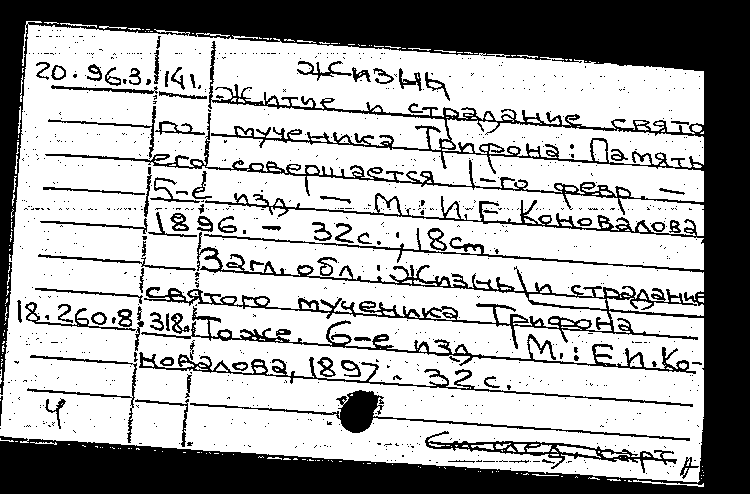 Жизнь
20.96.3.141. Житие и страдание свято
го мученика Трифона: Память
его совершается 1-го февр. —
5-е изд. — М.: И.Е.Коновалова,
1896. - 32с.; 18см.
Загл. обл.: Жизнь и страдание
святого мученика Трифона.
18.260.8.318. То же. 6-е изд. М.: Е.И.Ко-
новалова, 1897. 32с.
4
См. след. карт.